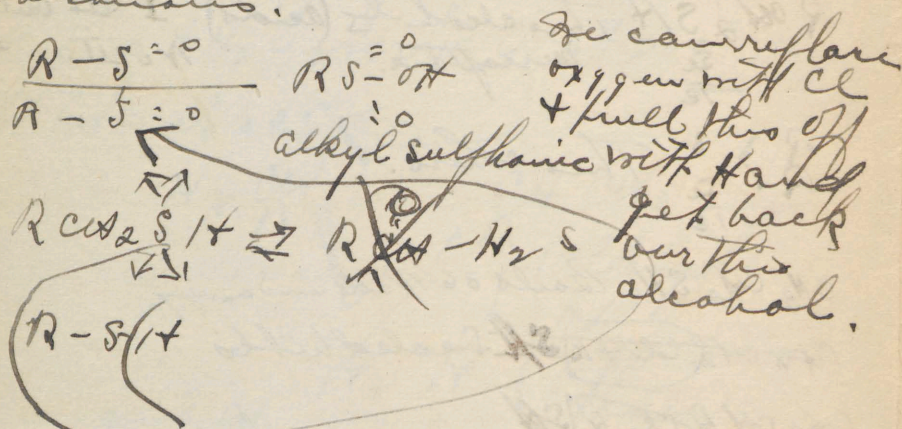 R - S = O
R - S = O
R S = O - OH
= O
alkyl sulfhonic
R CH2 S /H ⇌ R CH - H2 S
R - S /H
We can replace
oxygen with Cl
+ pull this off
with H and
get back
our thio
alcohol.